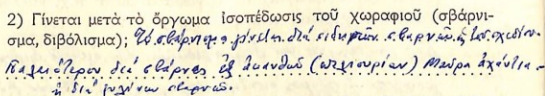 2) Γίνεται μετὰ τὸ ὄργωμα ἰσοπέδωσις τοῦ χωραφιοῦ (σβάρνι-
σμα, διβόλισμα); Τὸ σβάρνισμα γίνεται διὰ σιδηρῶν σβαρνῶν ἢ
Παλαιότερον διὰ σβάρνας ἐξ ἀκανθῶν μαῦρα ἀχάντια
ἢ διὰ ξυλίνων σβαρνῶν.